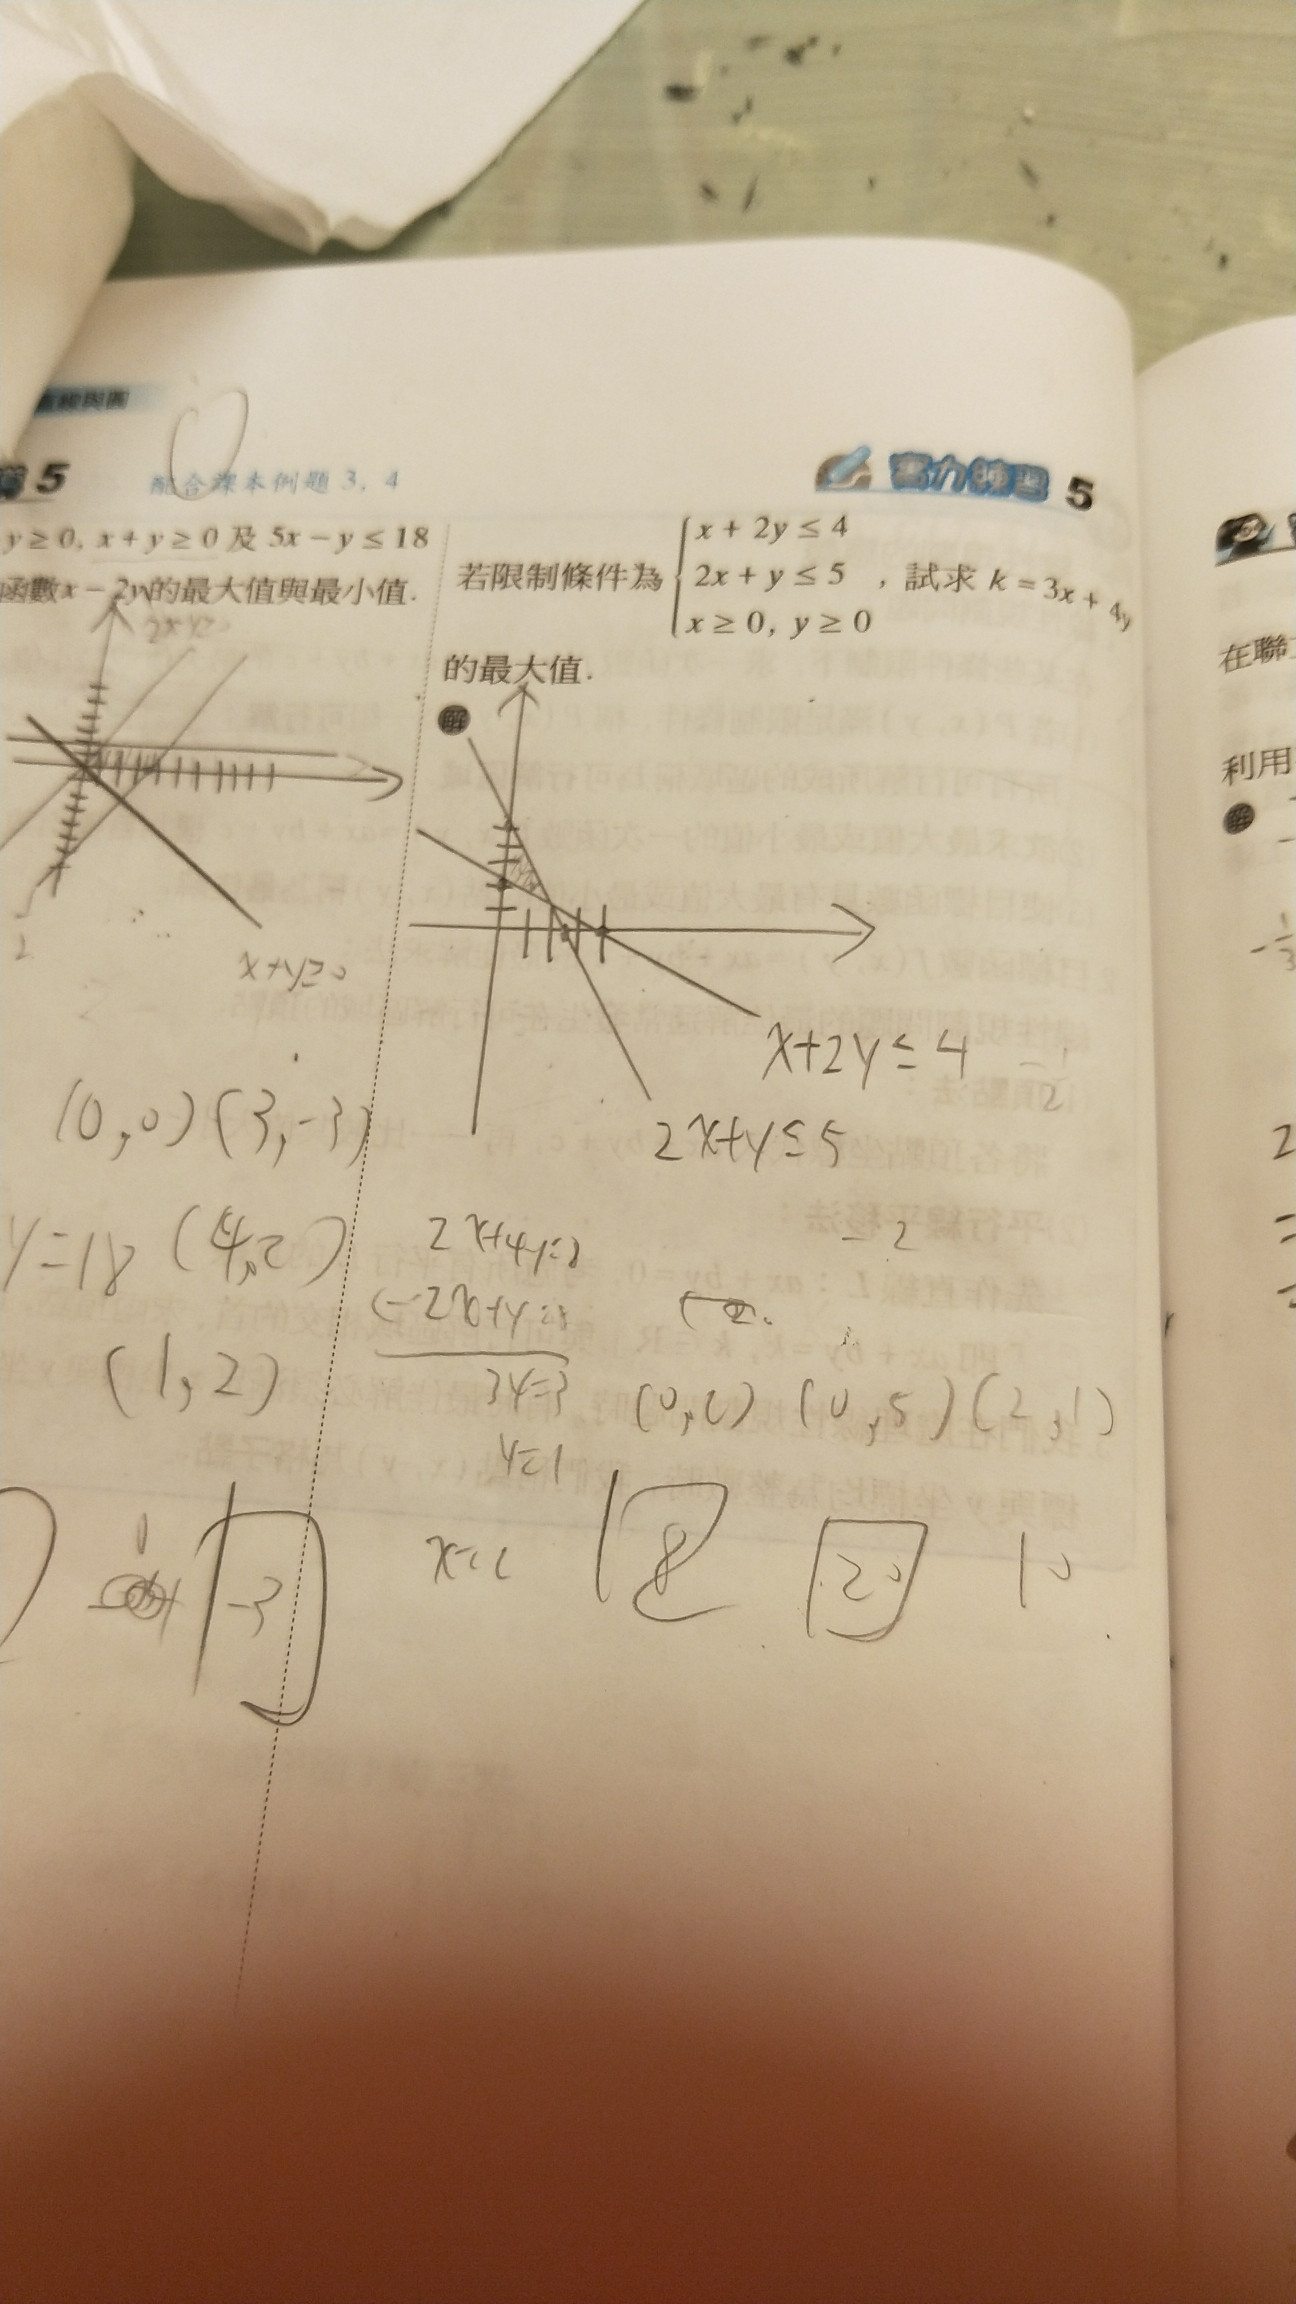 直線與圓
5
配合課本例題 3, 4
y ≥ 0, x + y ≥ 0 及 5x − y ≤ 18
函數 x − 2y 的最大值與最小值.
x+y≥0
(0,0) (3,-3)
y=18 (4,2)
(1,2)
0
-3
實力練習 5
若限制條件為 { x + 2y ≤ 4
2x + y ≤ 5
x ≥ 0, y ≥ 0
, 試求 k = 3x + 4y
的最大值.
解
x+2y≤4
2x+y≤5
-2
2x+4y=8
3y=3
y=1
(0,2) (0,5) (2,1)
8
20
10
在聯
利用